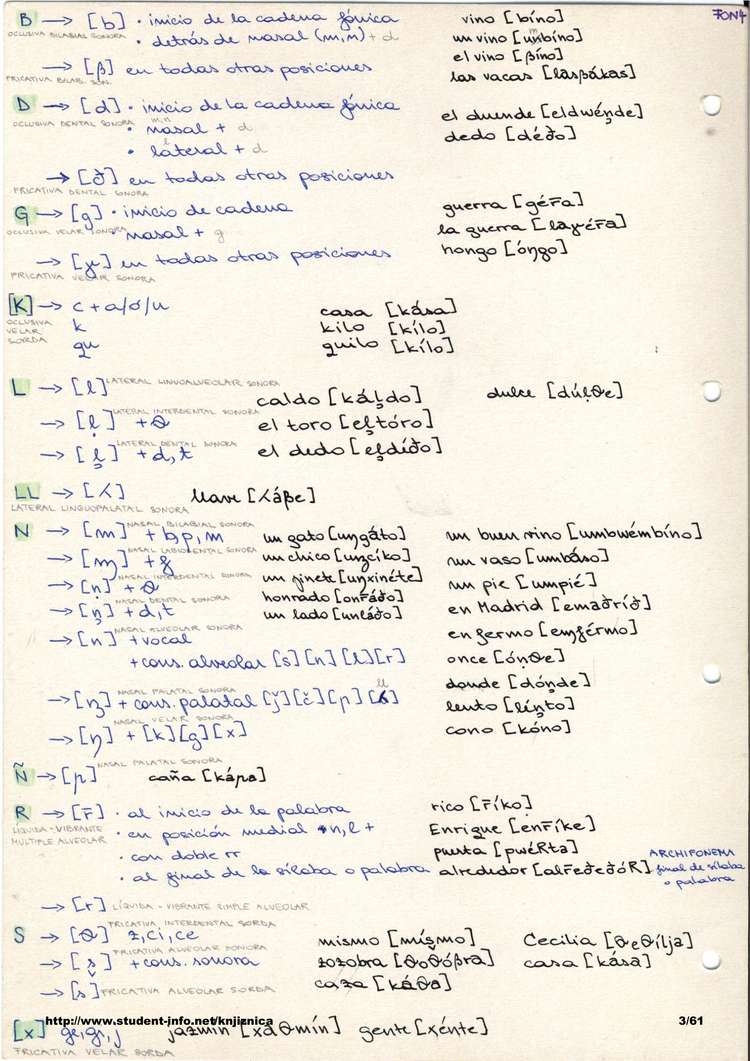 B → [b] • inicio de la cadena fónica vino [bíno] FON4
OCLUSIVA BILABIAL SONORA • detrás de nasal (m,n) + d un vino [umbíno]
→ [β] en todas otras posiciones el vino [βíno]
FRICATIVA BILAB. SON. las vacas [lasβákas]
D → [d] • inicio de la cadena fónica el duende [eldwén̪de]
OCLUSIVA DENTAL SONORA • nasal + d dedo [déđo]
m,n
• lateral + d
l
→ [đ] en todas otras posiciones
FRICATIVA DENTAL SONORA
G → [g] • inicio de cadena guerra [gér̄a]
OCLUSIVA VELAR SONORA • nasal + g la guerra [laɣér̄a]
→ [ɣ] en todas otras posiciones hongo [óŋgo]
FRICATIVA VELAR SONORA
[K] → c + a/o/u casa [kása]
OCLUSIVA VELAR SORDA k kilo [kílo]
qu quilo [kílo]
L → [l] LATERAL LINGUOALVEOLAR SONORA caldo [kál̪do] dulce [dúl̟θe]
→ [l̟] LATERAL INTERDENTAL SONORA + θ el toro [el̪tóro]
→ [l̪] LATERAL DENTAL SONORA + d,t el dedo [el̪díđo]
LL → [ʎ] llave [ʎáβe]
LATERAL LINGUOPALATAL SONORA
N → [m] NASAL BILABIAL SONORA + b,p,m un gato [uŋgáto] un buen vino [umbwémbíno]
→ [ɱ] NASAL LABIODENTAL SONORA + f un chico [unčíko] un vaso [umbáso]
→ [n̟] NASAL INTERDENTAL SONORA + θ un jinete [uŋxinéte] un pie [umpié]
→ [n̪] NASAL DENTAL SONORA + d,t honrado [onr̄áđo] en Madrid [emađríđ]
→ [n] NASAL ALVEOLAR SONORA + vocal un lado [unláđo] enfermo [eɱférmo]
+ cons. alveolar [s] [n] [l] [r] once [ón̟θe]
→ [ɲ] NASAL PALATAL SONORA + cons. palatal [ǰ] [č] [ɲ] [ʎ] donde [dón̪de]
ll
→ [ŋ] NASAL VELAR SONORA + [k] [g] [x] lento [lín̪to]
cono [kóno]
Ñ → [ɲ] NASAL PALATAL SONORA caña [káɲa]
R → [r̄] • al inicio de la palabra rico [r̄íko]
LÍQUIDA - VIBRANTE MULTIPLE ALVEOLAR • en posición medial n,l + Enrique [enr̄íke]
• con doble rr puerta [pwéRta]
• al final de la sílaba o palabra alrededor [alr̄eđeđóR] ARCHIFONEMA final de sílaba o palabra
→ [r] LÍQUIDA - VIBRANTE SIMPLE ALVEOLAR
S → [θ] FRICATIVA INTERDENTAL SORDA z,ci,ce mismo [mís̬mo] Cecilia [θeθílja]
→ [s̬] FRICATIVA ALVEOLAR SONORA + cons. sonora zozobra [θoθóβra] casa [kása]
→ [s] FRICATIVA ALVEOLAR SORDA caza [káθa]
http://www.student-info.net/knjiznica 3/61
[x] ge,gi,j jazmin [xaθmín] gente [xénte]
FRICATIVA VELAR SORDA